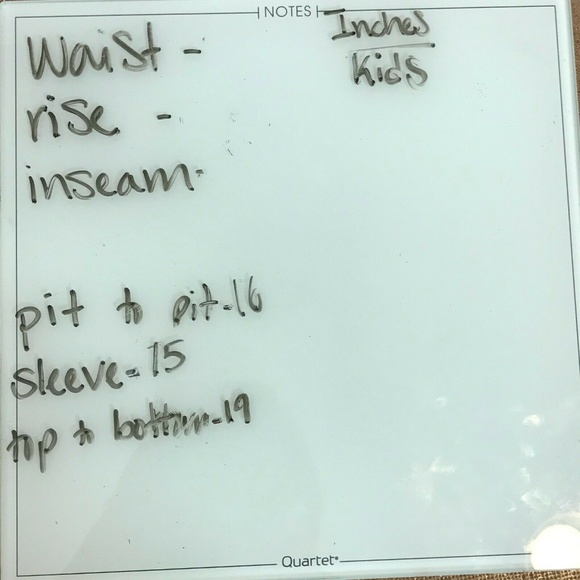 NOTES
Inches
Kids
Waist -
rise -
inseam-
pit to pit-16
sleeve-15
top to bottom-19
Quartet